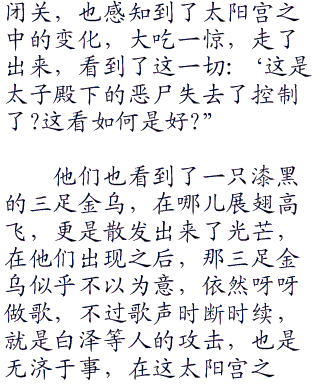 闭关，也感知到了太阳宫之
中的变化，大吃一惊，走了
出来，看到了这一切：‘这是
太子殿下的恶尸失去了控制
了?这看如何是好?”
他们也看到了一只漆黑
的三足金乌，在哪儿展翅高
飞，更是散发出来了光芒，
在他们出现之后，那三足金
乌似乎不以为意，依然呀呀
做歌，不过歌声时断时续，
就是白泽等人的攻击，也是
无济于事，在这太阳宫之